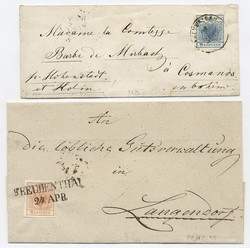 Madame la Comtesse
Barbe de
pr Hohenstadt,
à Cosmanos
et Kolin
en bohème
An
die löbliche Gutsverwaltung
in
FREUDENTHAL
24 APR.
Langendorf